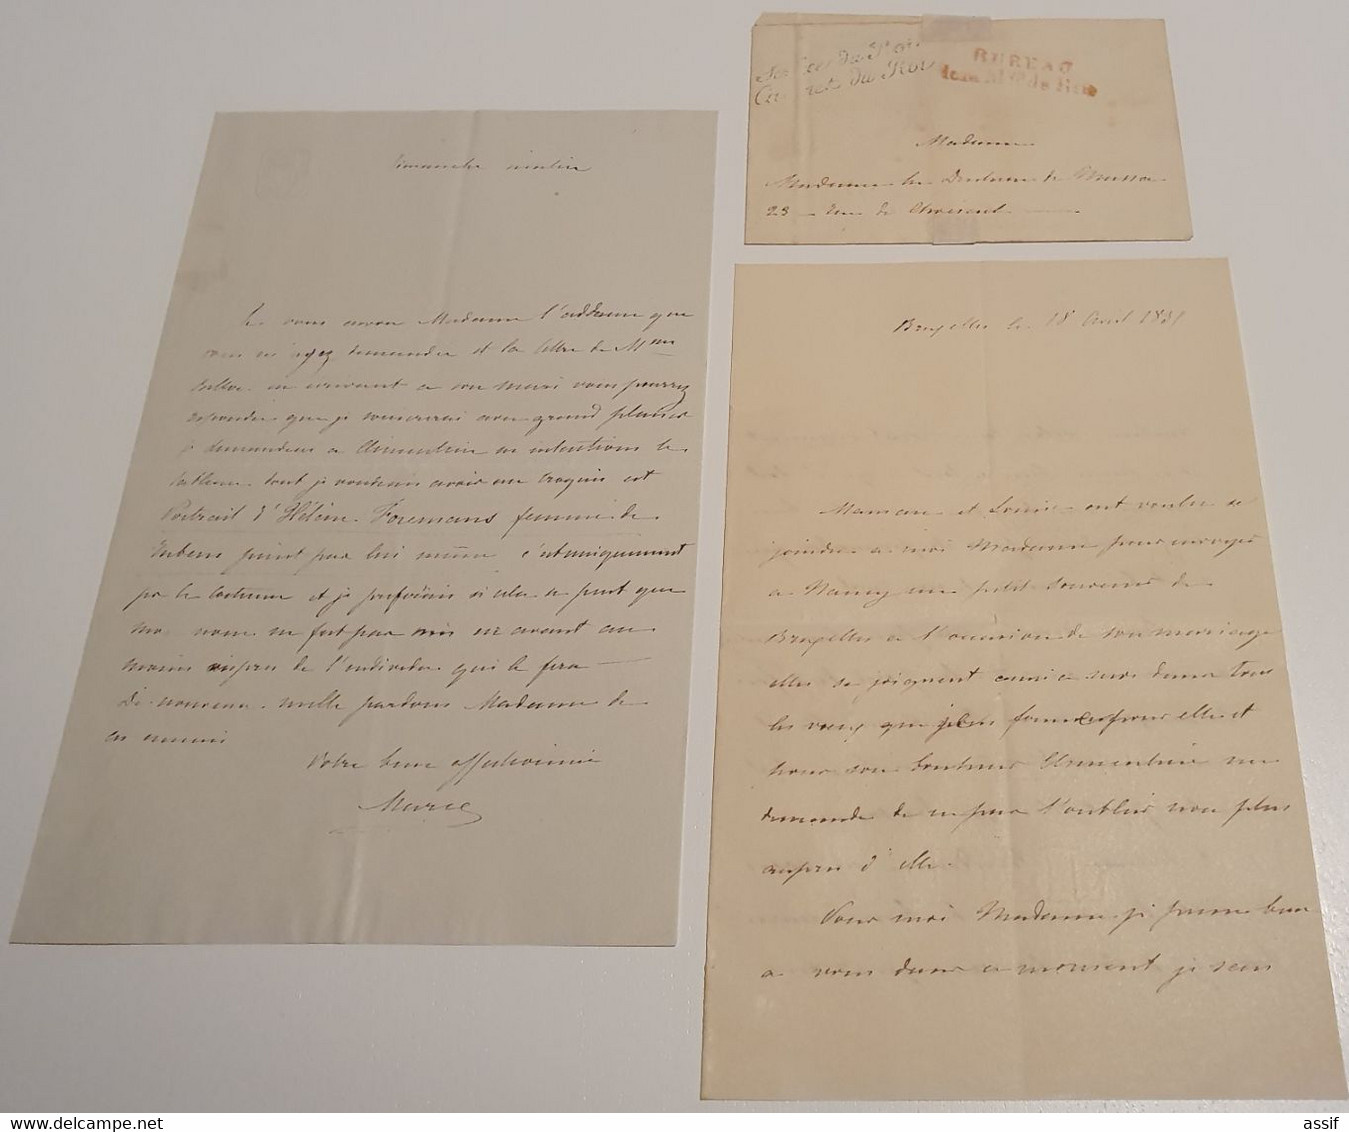 Dimanche matin
Je vous envoie Madame l'addresse que
vous m'ayez demandée et la lettre de Mme
en écrivant à son mari vous pourrez
répondre que je souscrirai avec grand plaisir
je demanderai à Clémentine ses intentions le
tableau dont je voudrais avoir un croquis est
Portrait d'Hélène Foremans femme de
Rubens peint par lui même c'est uniquement
pr le costume et je préférerais si cela se peut que
mon nom ne fut pas mis en avant au
moins auprès de l'individu qui le fera
De nouveau mille pardons Madame de
ces ennuis
Votre bien affectionnée
Marie
Service du Roi
Cabinet du Roi
BUREAU
de la Mon du Roi
Madame
Madame la Duchesse de Massa
23 rue de
Bruxelles le 18 Avril 1831
Maman et Louise ont voulu se
joindre à moi Madame pour envoyer
à Nancy un petit souvenir de
Bruxelles à l'occasion de son mariage
elles se joignent aussi à moi dans tous
les vœux que je fais pour elle et
pour son bonheur Clémentine me
demande de ne pas l'oublier non plus
auprès d'elle.
Pour moi Madame je pense bien
à vous dans ce moment je sens
assif